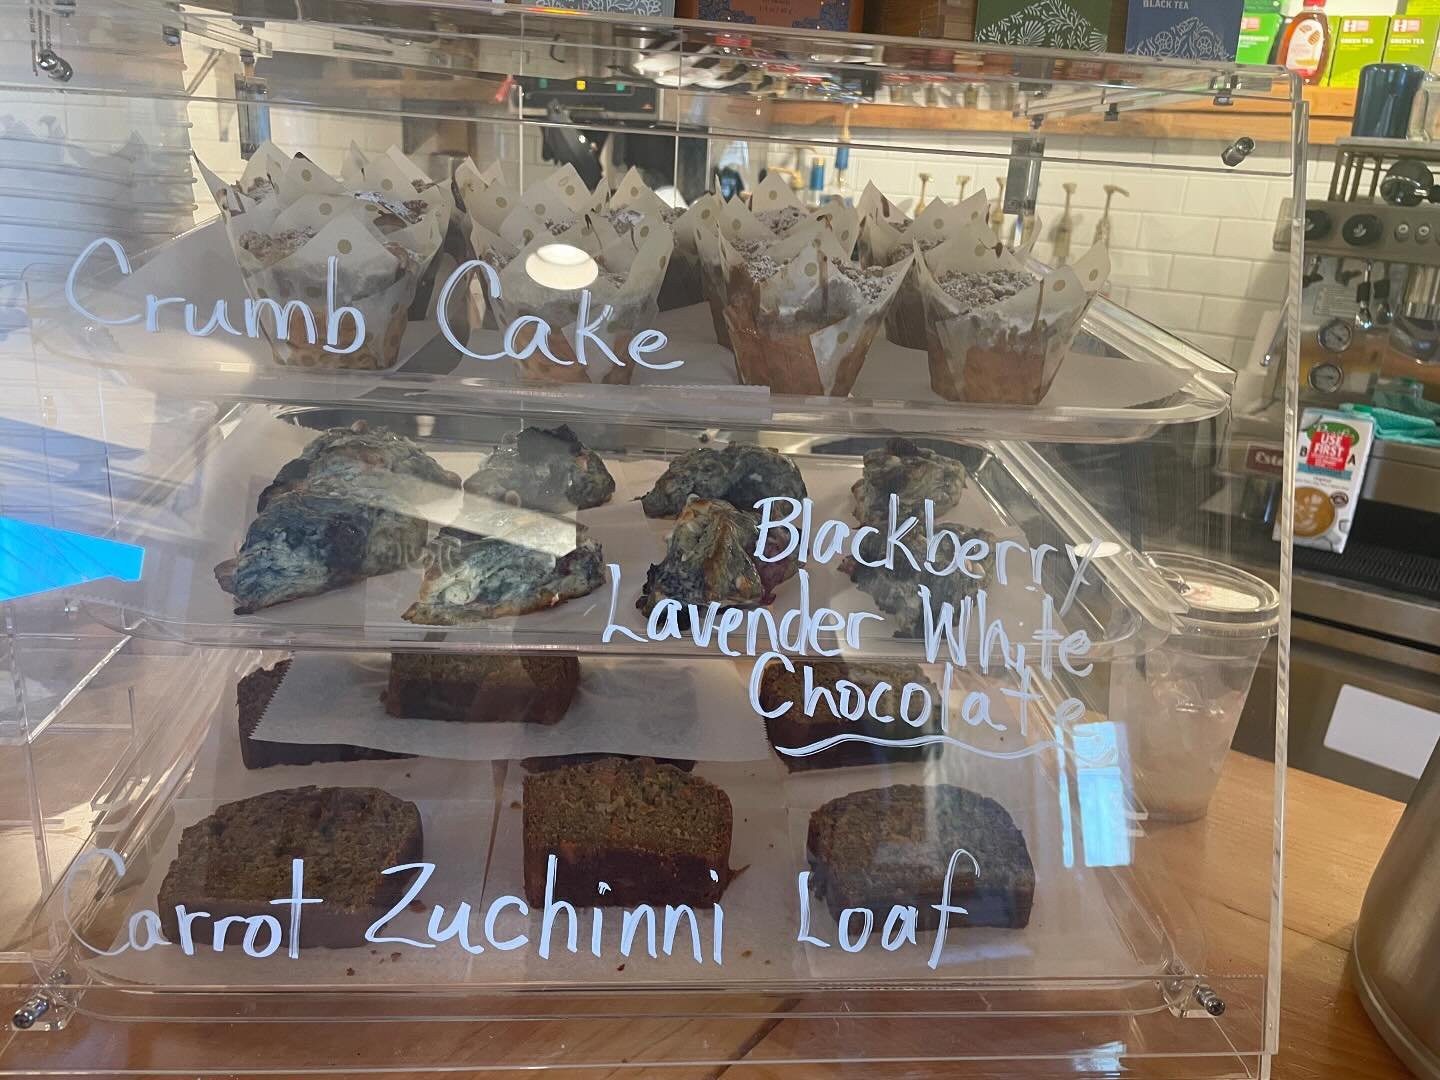 BLACK TEA
GREEN TEA
GREEN TEA
Crumb Cake
USE
FIRST
Blackberry
Lavender White
Chocolate
Carrot Zuchinni Loaf